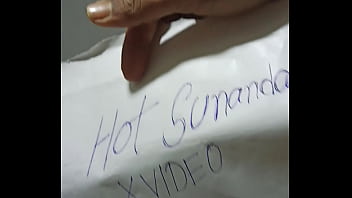 Hot Sunanda
XVIDEO